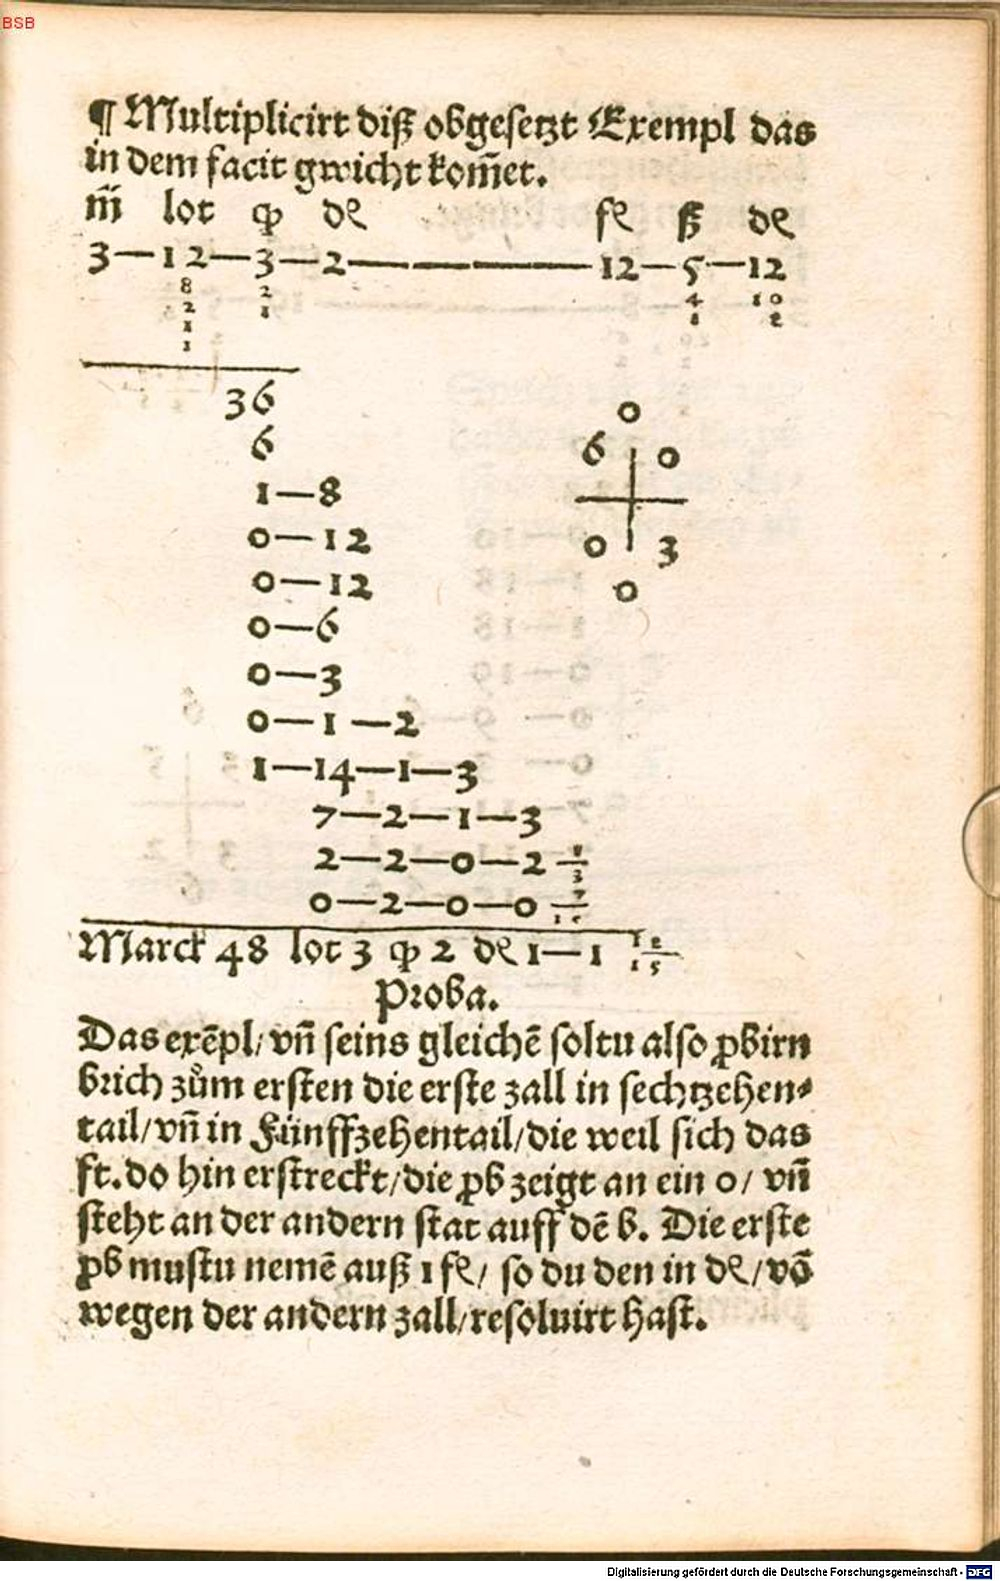 BSB
¶ Multiplicirt diß obgesetzt Exempl das
in dem facit gwicht kom̃et.
m̃ lot qp dₑ fl ß dₑ
3—12—3—2————12—5—12
8 2 4 10
2 1 1 2
1
1
36
6
1—8
0—12
0—12
0—6
0—3
0—1—2
1—14—1—3
7—2—1—3
2—2—0—2 1/3
0—2—0—0 7/15
0
6 0
0 3
0
Marck 48 lot 3 qp 2 dₑ 1—1 12/15
Proba.
Das exẽpl/ vñ seins gleichẽ soltu also ꝓbirn
brich zům ersten die erste zall in sechtzehen⸗
tail/ vñ in Fünffzehentail/ die weil sich das
ft. do hin erstreckt/ die ꝓb zeigt an ein 0/ vñ
steht an der andern stat auff dẽ b. Die erste
ꝓb mustu nemẽ auß 1 fl/ so du den in dₑ/ võ
wegen der andern zall/ resoluirt hast.
Digitalisierung gefördert durch die Deutsche Forschungsgemeinschaft - DFG